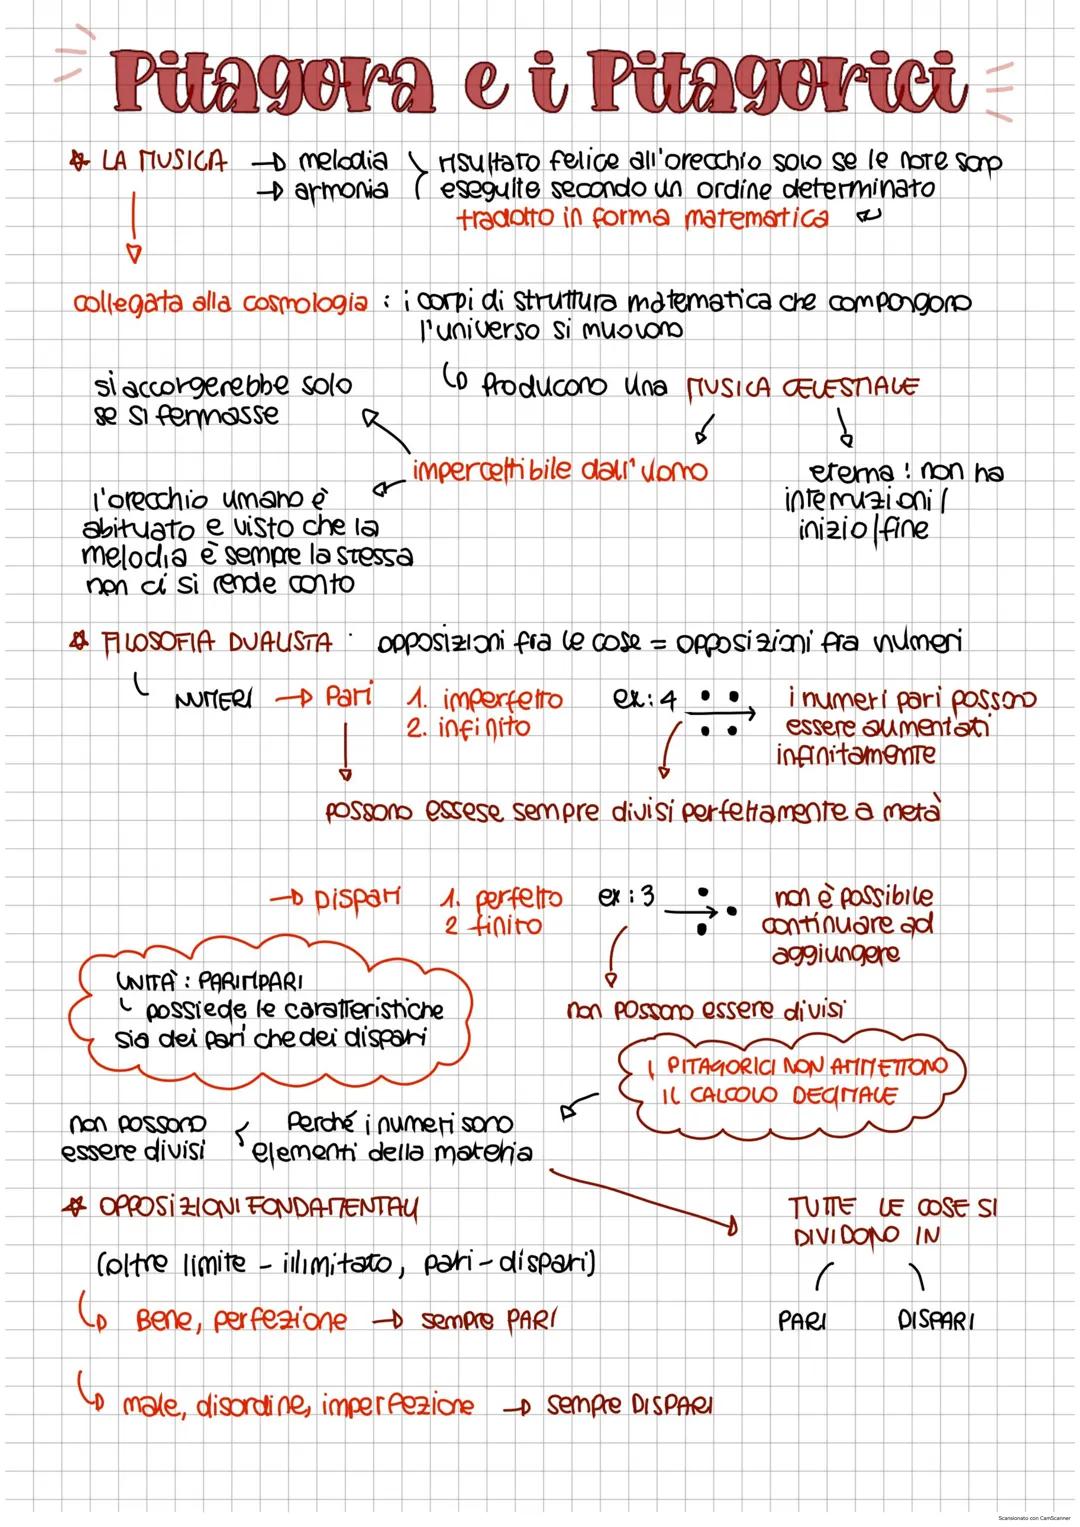 Pitagora e i Pitagorici
LA MUSICA → melodia
→ armonia
risultato felice all'orecchio solo se le note sono
eseguite secondo un ordine determinato
tradotto in forma matematica
collegata alla cosmologia : i corpi di struttura matematica che compongono
l'universo si muovono
producono una MUSICA CELESTIALE
si accorgerebbe solo
se si fermasse
impercettibile dall'uomo
eterna : non ha
interruzioni /
inizio / fine
l'orecchio umano è
abituato e visto che la
melodia è sempre la stessa
non ci si rende conto
FILOSOFIA DUALISTA : opposizioni fra le cose = opposizioni fra numeri
NUMERI → Pari 1. imperfetto
2. infinito
ex: 4
i numeri pari possono
essere aumentati
infinitamente
possono essese sempre divisi perfettamente a metà
→ Dispari 1. perfetto
2 finito
ex : 3
non è possibile
continuare ad
aggiungere
non possono essere divisi
UNITÀ : PARIMPARI
possiede le caratteristiche
sia dei pari che dei dispari
I PITAGORICI NON AMMETTONO
IL CALCOLO DECIMALE
Perché i numeri sono
elementi della materia
non possono
essere divisi
TUTTE LE COSE SI
DIVIDONO IN
PARI DISPARI
OPPOSIZIONI FONDAMENTALI
(oltre limite - illimitato, pari - dispari)
Bene, perfezione → sempre PARI
male, disordine, imperfezione → sempre DISPARI
Scansionato con CamScanner